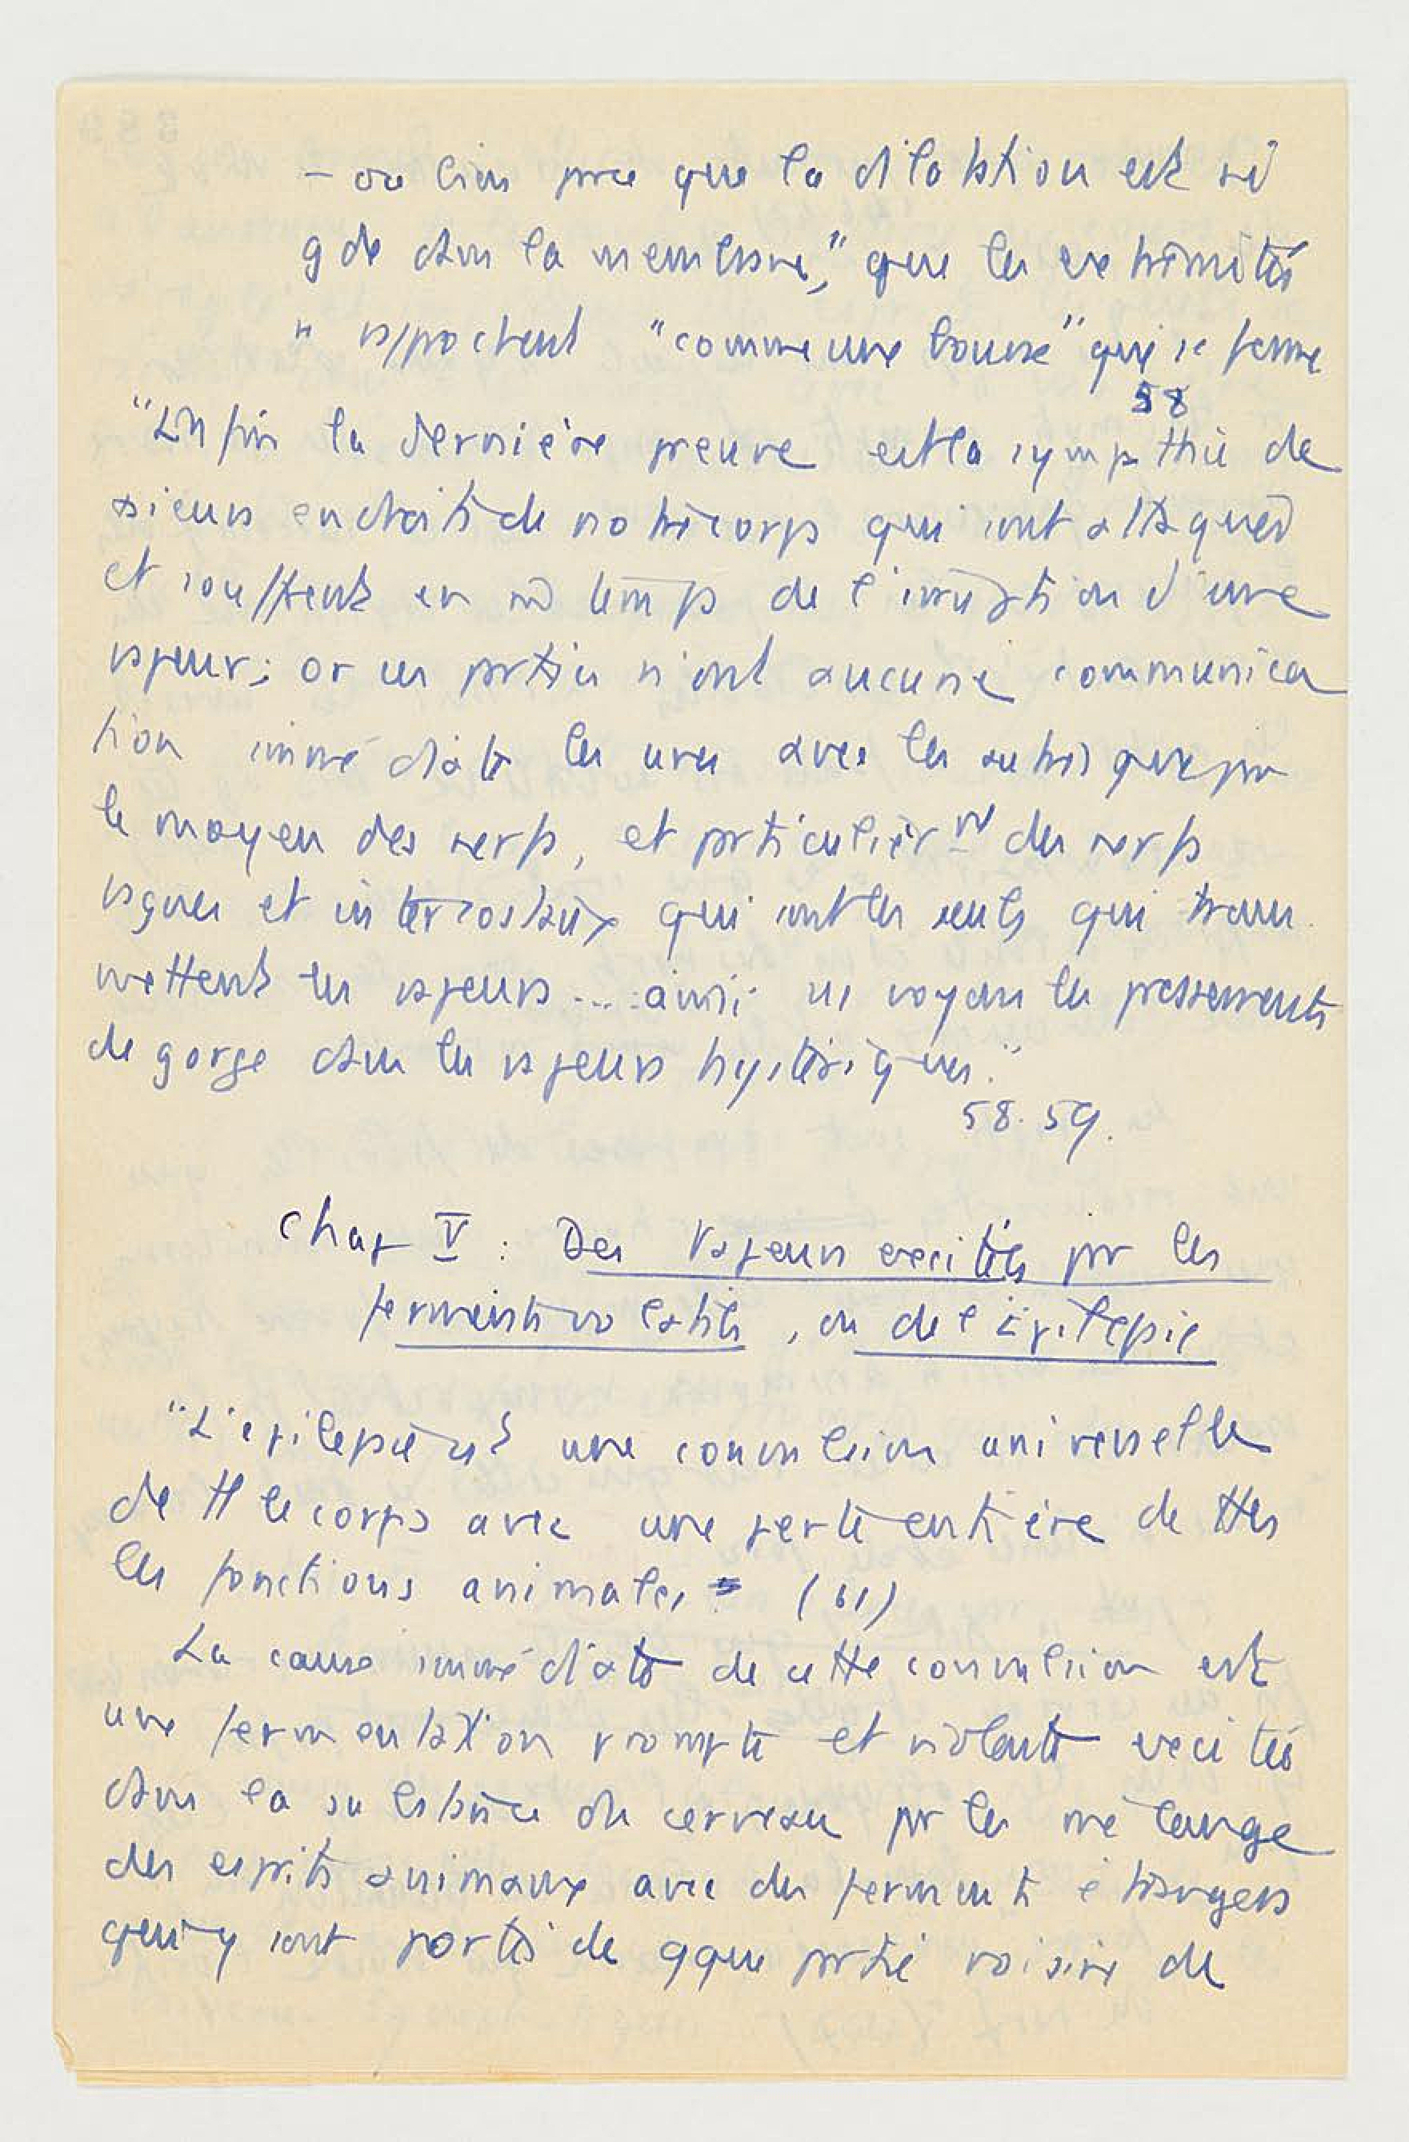 - ou bien pce que la dilatation est si
gde dans la membrane," que les extrémités
" rapprochent "comme une bourse" qui se ferme
58
"Enfin la dernière preuve est la sympathie de
sieurs endroits de notre corps qui sont attaqués
et souffrent en m̂ temps de l'irruption d'une
vapeur; or ces parties n'ont aucune communica
tion immédiate les unes avec les autres que par
le moyen des nerfs, et particulièrnt des nerfs
vagues et intercostaux qui sont les seuls qui trans
mettent les vapeurs ... ainsi ns voyons les pressements
de gorge dans les vapeurs hystériques."
58. 59.
Chap V : Des Vapeurs excitées par les
ferments volatils, ou de l'Épilepsie
"L'épilepsie est une convulsion universelle
de tt le corps avec une perte entière de ttes
les fonctions animales (61)
La cause immédiate de cette convulsion est
une fermentation prompte et violente excitée
dans la substance du cerveau par les mélange
des esprits animaux avec des ferments étrangers
qui y sont portés de qque partie voisine de